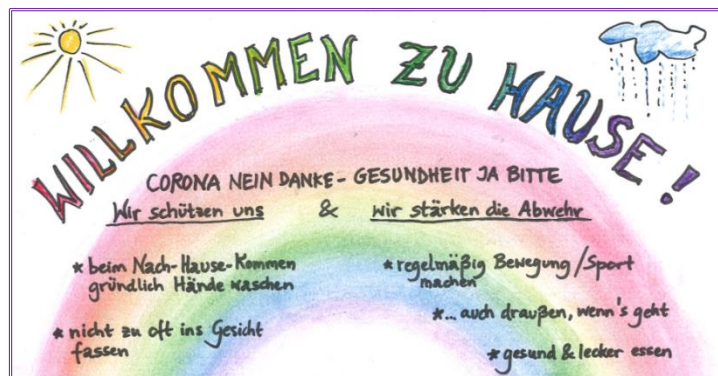 WILLKOMMEN ZU HAUSE!
CORONA NEIN DANKE - GESUNDHEIT JA BITTE
Wir schützen uns & wir stärken die Abwehr
* beim Nach-Hause-Kommen
gründlich Hände waschen
* nicht zu oft ins Gesicht
fassen
* regelmäßig Bewegung/Sport
machen
*... auch draußen, wenn's geht
* gesund & lecker essen